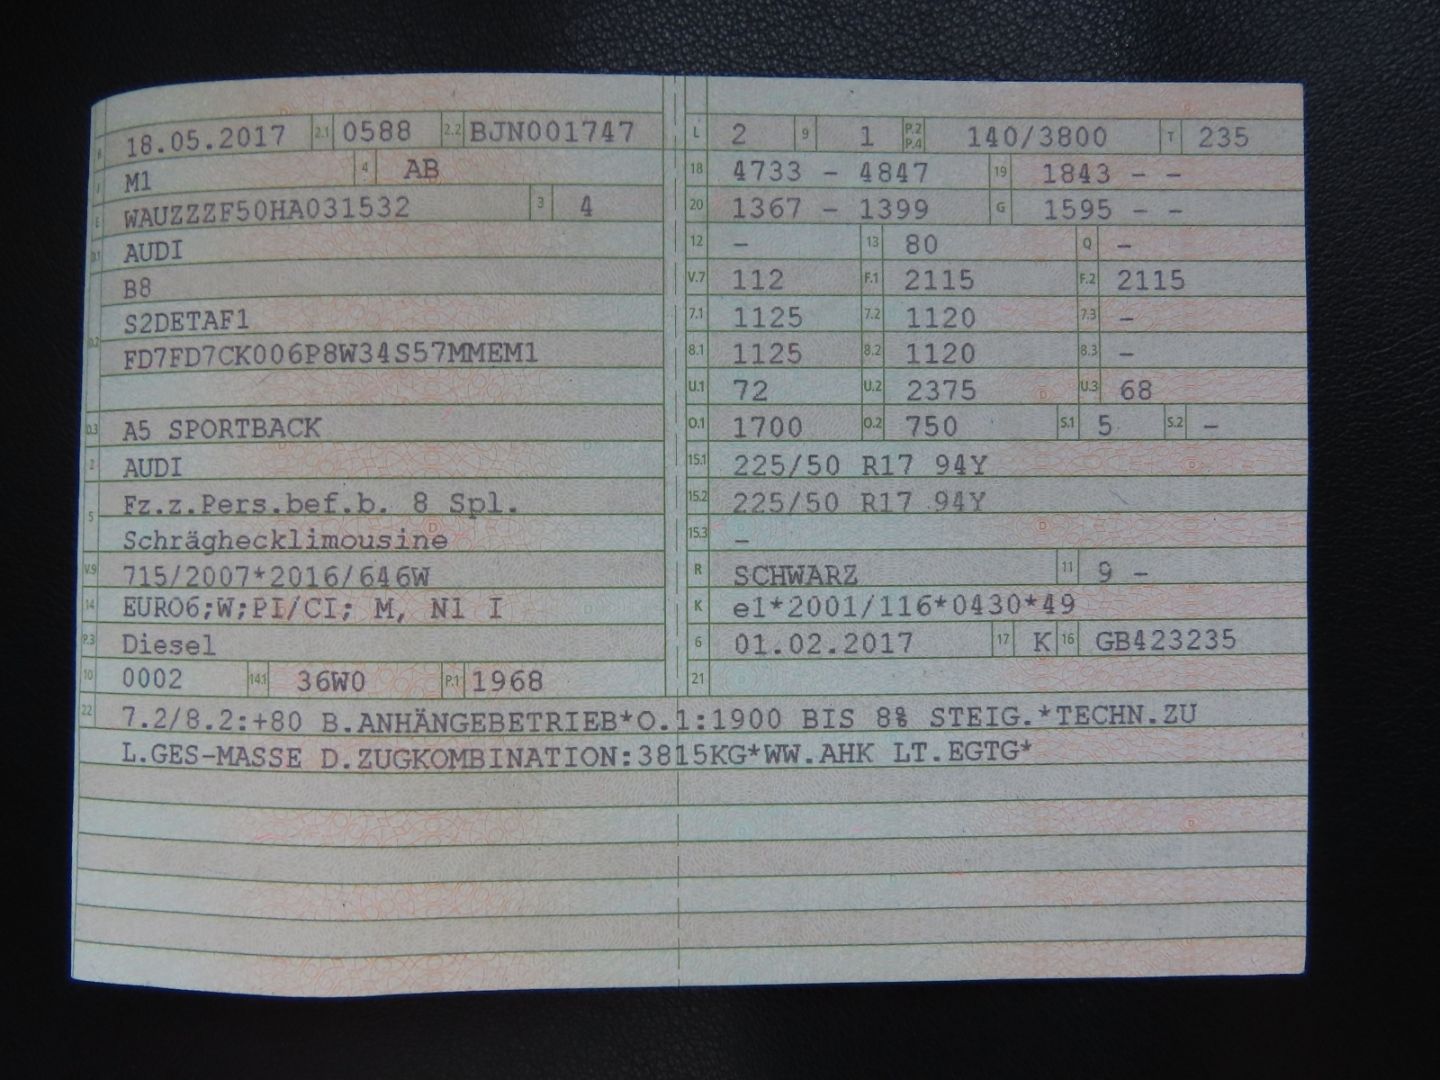 B 18.05.2017 2.1 0588 2.2 BJN001747
J M1 4 AB
E WAUZZZF50HA031532 3 4
D.1 AUDI
B8
S2DETAF1
D.2 FD7FD7CK006P8W34S57MMEM1
D.3 A5 SPORTBACK
2 AUDI
5 Fz.z.Pers.bef.b. 8 Spl.
Schräghecklimousine
V.9 715/2007*2016/646W
14 EURO6;W;PI/CI; M, N1 I
P.3 Diesel
10 0002 14.1 36W0 P.1 1968
L 2 9 1 P.2 P.4 140/3800 T 235
18 4733 - 4847 19 1843 - -
20 1367 - 1399 G 1595 - -
12 - 13 80 Q -
V.7 112 F.1 2115 F.2 2115
7.1 1125 7.2 1120 7.3 -
8.1 1125 8.2 1120 8.3 -
U.1 72 U.2 2375 U.3 68
O.1 1700 O.2 750 S.1 5 S.2 -
15.1 225/50 R17 94Y
15.2 225/50 R17 94Y
15.3 -
R SCHWARZ 11 9 -
K e1*2001/116*0430*49
6 01.02.2017 17 K 16 GB423235
21
22 7.2/8.2:+80 B.ANHÄNGEBETRIEB*O.1:1900 BIS 8% STEIG.*TECHN.ZU
L.GES-MASSE D.ZUGKOMBINATION:3815KG*WW.AHK LT.EGTG*